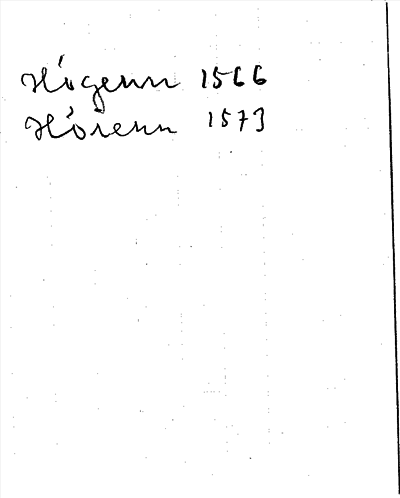 Högenn 1566
Hörenn 1573